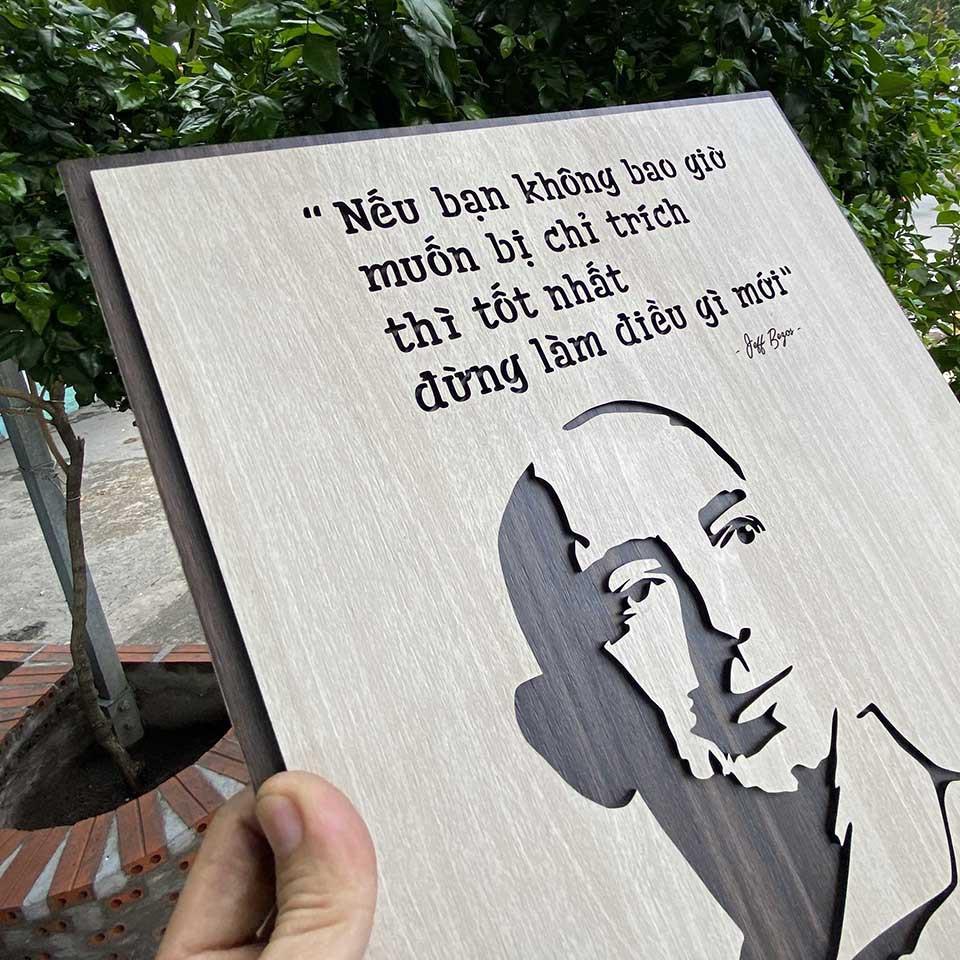 “Nếu bạn không bao giờ
muốn bị chỉ trích
thì tốt nhất
đừng làm điều gì mới"
- Jeff Bezos -